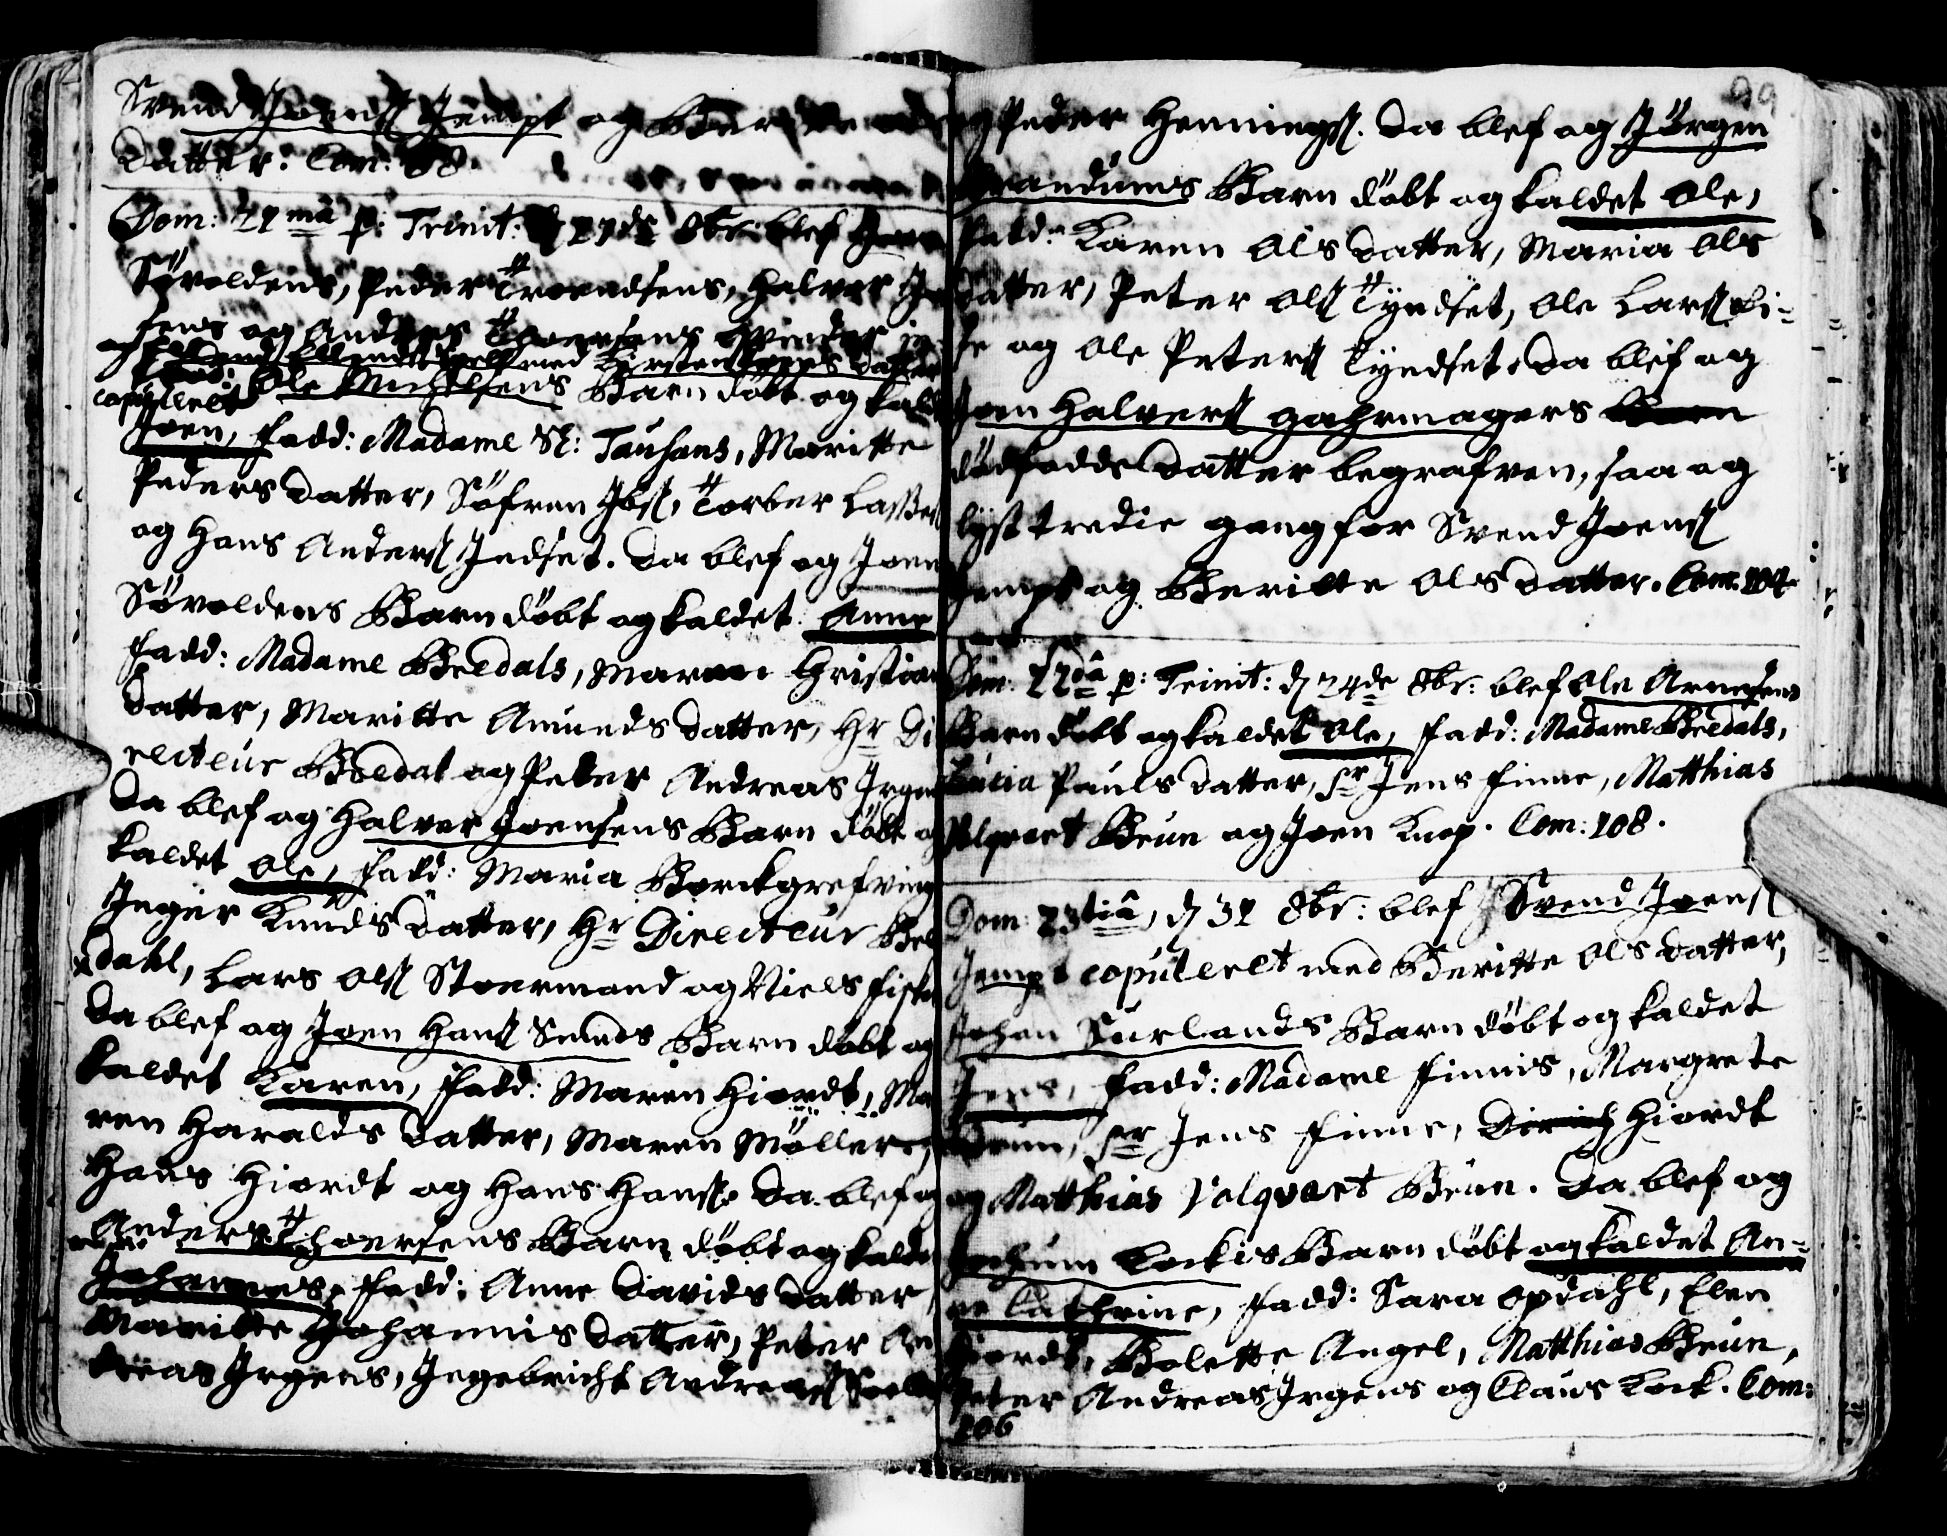 Svend Joenſ Jempt og Beritte
datter. Com: 88.
Dom: 21mâ p: Trinit: d 17de 8br: blef Joen
Søvoldens, Peder Troendsens, Halvor Jo
sens og Anders Thoersens Qvinder in
med Kirsten datter
copulleret Ole Michelsens Barn døbt og kald
Joen, Fadd: Madame Sl: Tausans, Maritte
Peders datter, Søfren Ibſ, Torber Lasse
og Hans Anderſ Indset. Da blef og Joen
Søvoldens Barn døbt og kaldet Anne
Fadd: Madame Bredals, Maren Christian
datter, Maritte Amunds datter, Hr Di
recteur Bredal og Peter Andreas Irgen
Da blef og Halvor Joensens Barn døbt og
kaldet Ole, Fadd: Maria Borckgrefving
Ingier Knuds datter, Hr Directeur Bre
dahl, Lars Olſ Stoermoend og Niels Fisk
Da blef og Joen Hanſ Smeds Barn døbt og
kaldet Karen, Fadd: Maren Hiordt, Ma
ren Haralds datter, Maren Møllers,
Hans Hiordt og Hans Hanſ. Da blef og
Anders Thoersens Barn døbt og kalde
Johannes, Fadd: Anne Davids datter,
Maritte Johannis datter, Peter An
dreas Irgens, Ingebricht Andreaſ
99
og Peder Henningſ. Da blef og Jørgen
Brandums Barn døbt og kaldet Ole,
Fadd: Karen Ols datter, Maria Ols
datter, Peter Olſ Tyndset, Ole Larſ Li-
se og Ole Peterſ Tyndset. Da blef og
Joen Halvorſ gahrmagers Barn
dødfødde datter begrafven, saa og
lyst tredie gang for Svend Joenſ
Jempt og Beritte Ols datter. Com: 104
Dom. 22dâ p: Trinit: d 24de 8br: blef Ole Arnesens
Barn døbt og kaldet Ole, Fadd: Madame Bredals,
Lucia Pauls datter, Sr Jens Finne, Matthias
Volqvart Brun og Joen Knop. Com: 108.
Dom. 23tiâ, d 31 8br: blef Svend Joenſ
Jempt copuleret med Beritte Ols datter,
Johan Surlands Barn døbt og kaldet
Jens, Fadd: Madame Finnis, Margrete
Brun, Sr Jens Finne, Dirich Hiordt
og Matthias Volqvart Brun. Da blef og
Jochum Lockis Barn døbt og kaldet An-
ne Cathrine, Fadd: Sara Opdahl, Elen
Hiordt, Bolette Angel, Matthias Brun,
Peter Andreas Irgens og Claus Lock. Com:
106